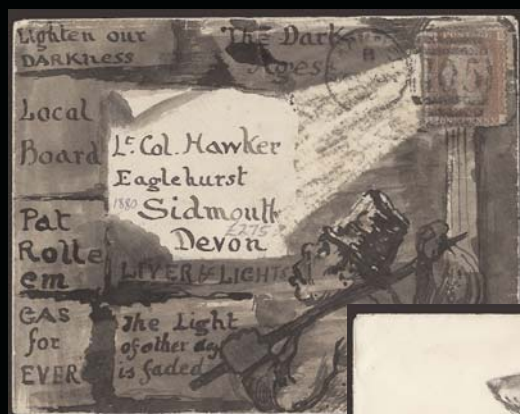 Lighten our
DARKNESS
The Dark
Ages
Local
Board
Lt. Col. Hawker
Eaglehurst
1880 Sidmouth
£275
Devon
Pat
Rolle
em
LIVER & LIGHTS
GAS
for
EVER
The Light
of other days
is faded
POSTAGE